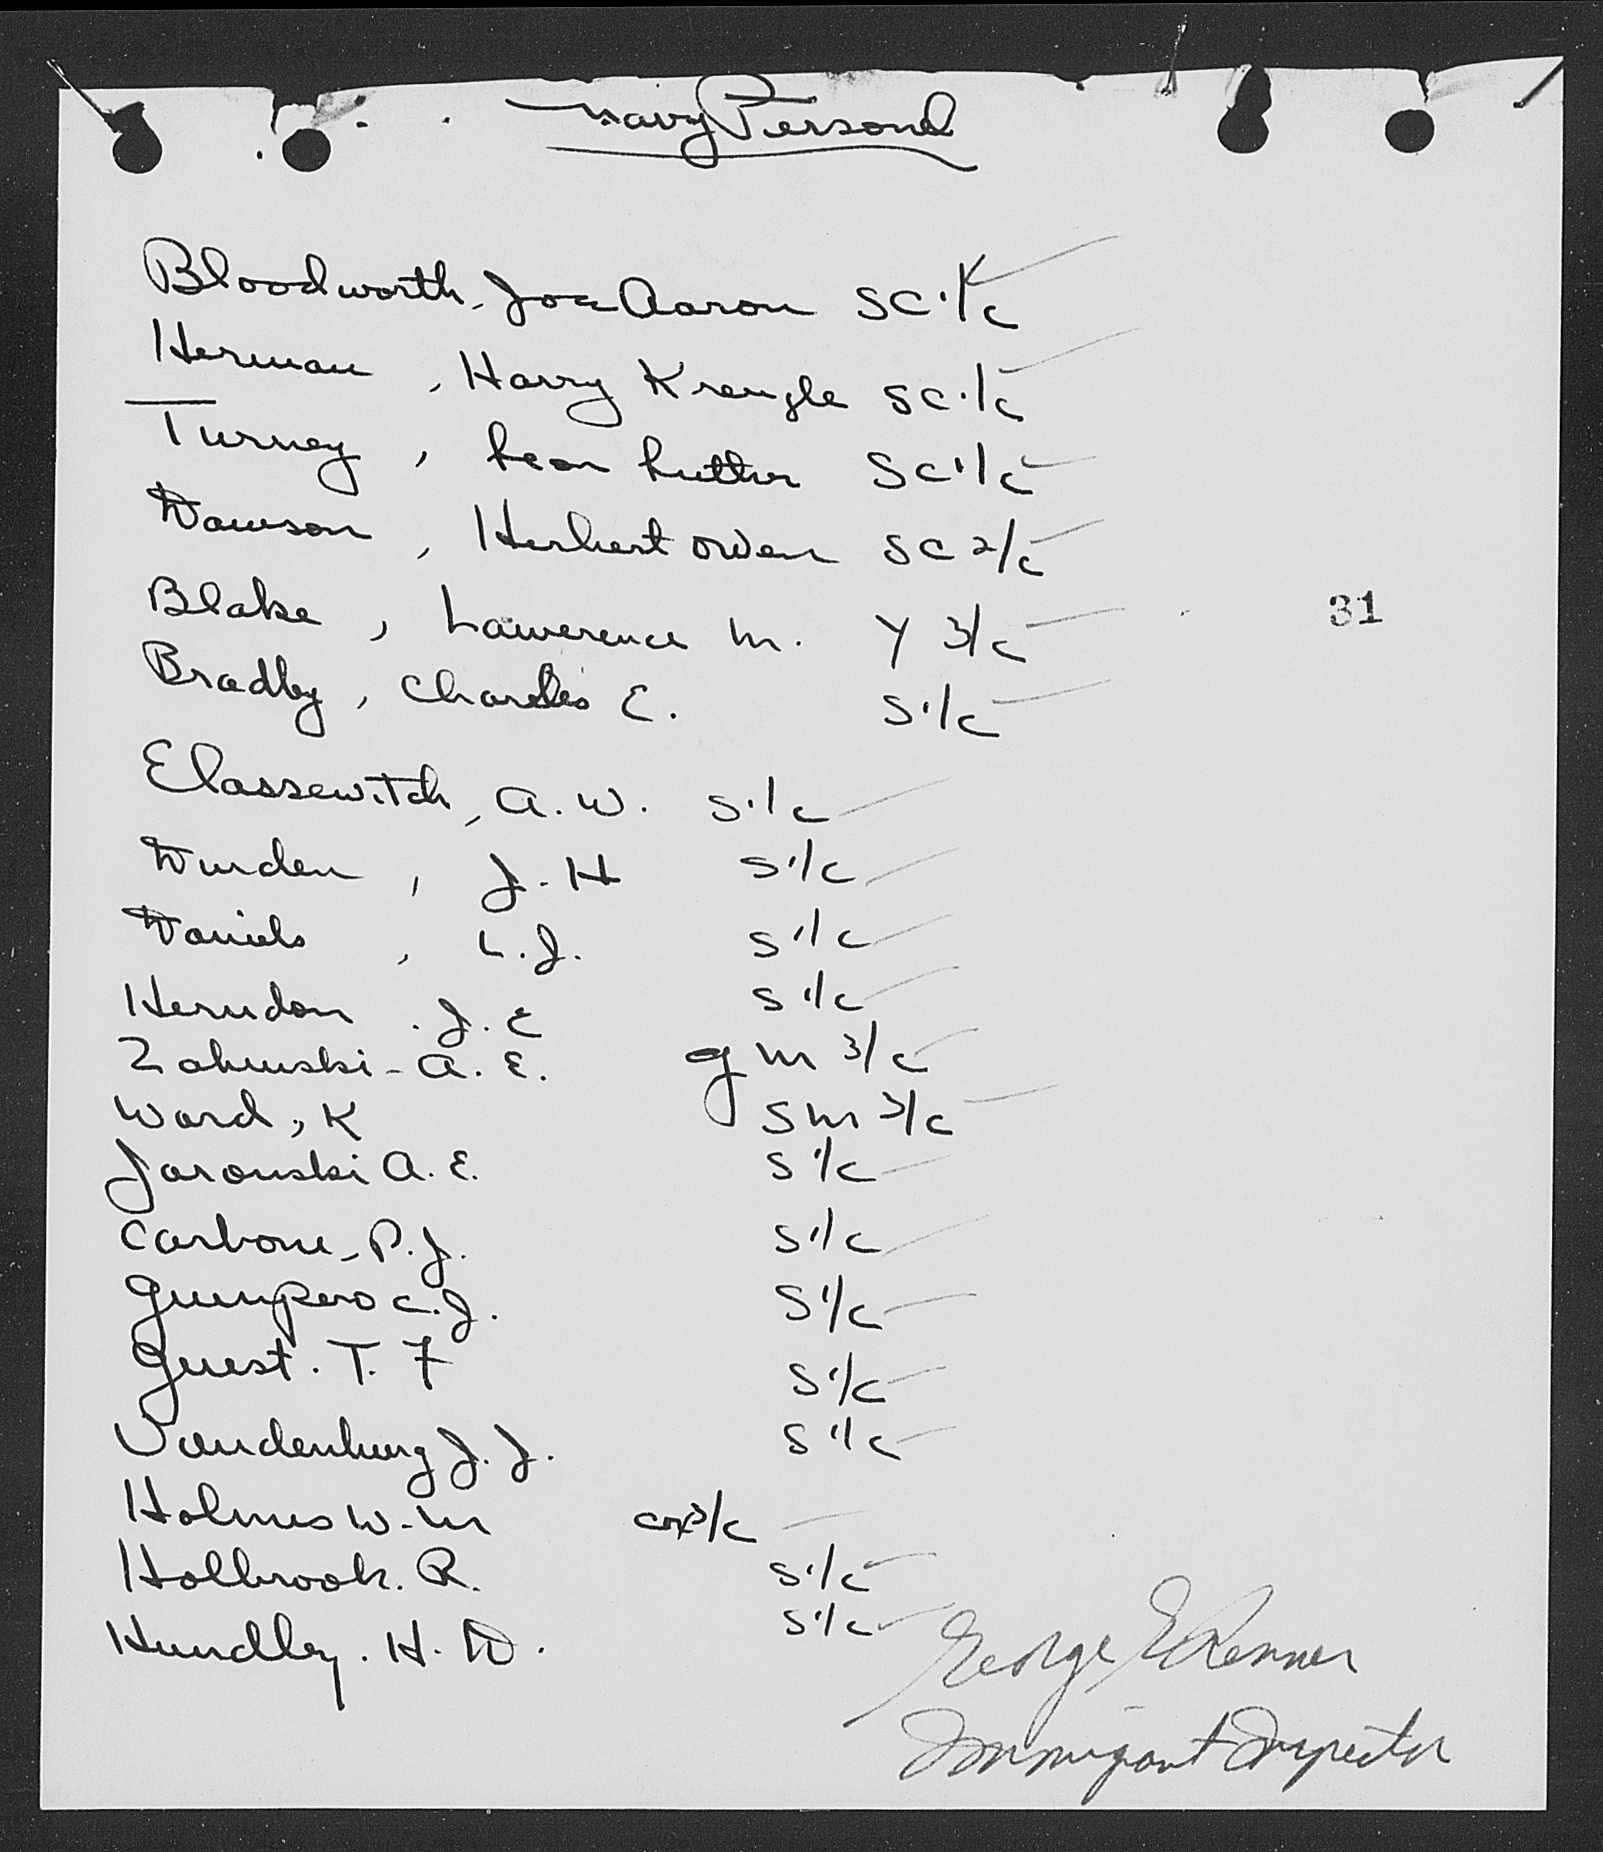 Navy Personel
Bloodworth, Joe Aaron SC 1/c
Herman, Harry Krengle SC 1/c
Turney, Leon Luther SC 1/c
Dawson, Herbert Owen SC 2/c
Blake, Lawerence M. Y 3/c
31
Bradby, Charles E. S 1/c
Elassewitch, A. W. S 1/c
Durden, J. H S 1/c
Daniels, L. J. S 1/c
Herndon. J. E S 1/c
A. E. GM 3/c
Ward, K SM 3/c
Jaronski A. E. S 1/c
Carbone, P. J. S 1/c
C. J. S 1/c
Guest. T. F S 1/c
Vandenburg J. J. S 1/c
Holmes W. M cox 3/c
Holbrook. R. S 1/c
Hundley. H. D. S 1/c
George E Renner
Immigrant Inspector